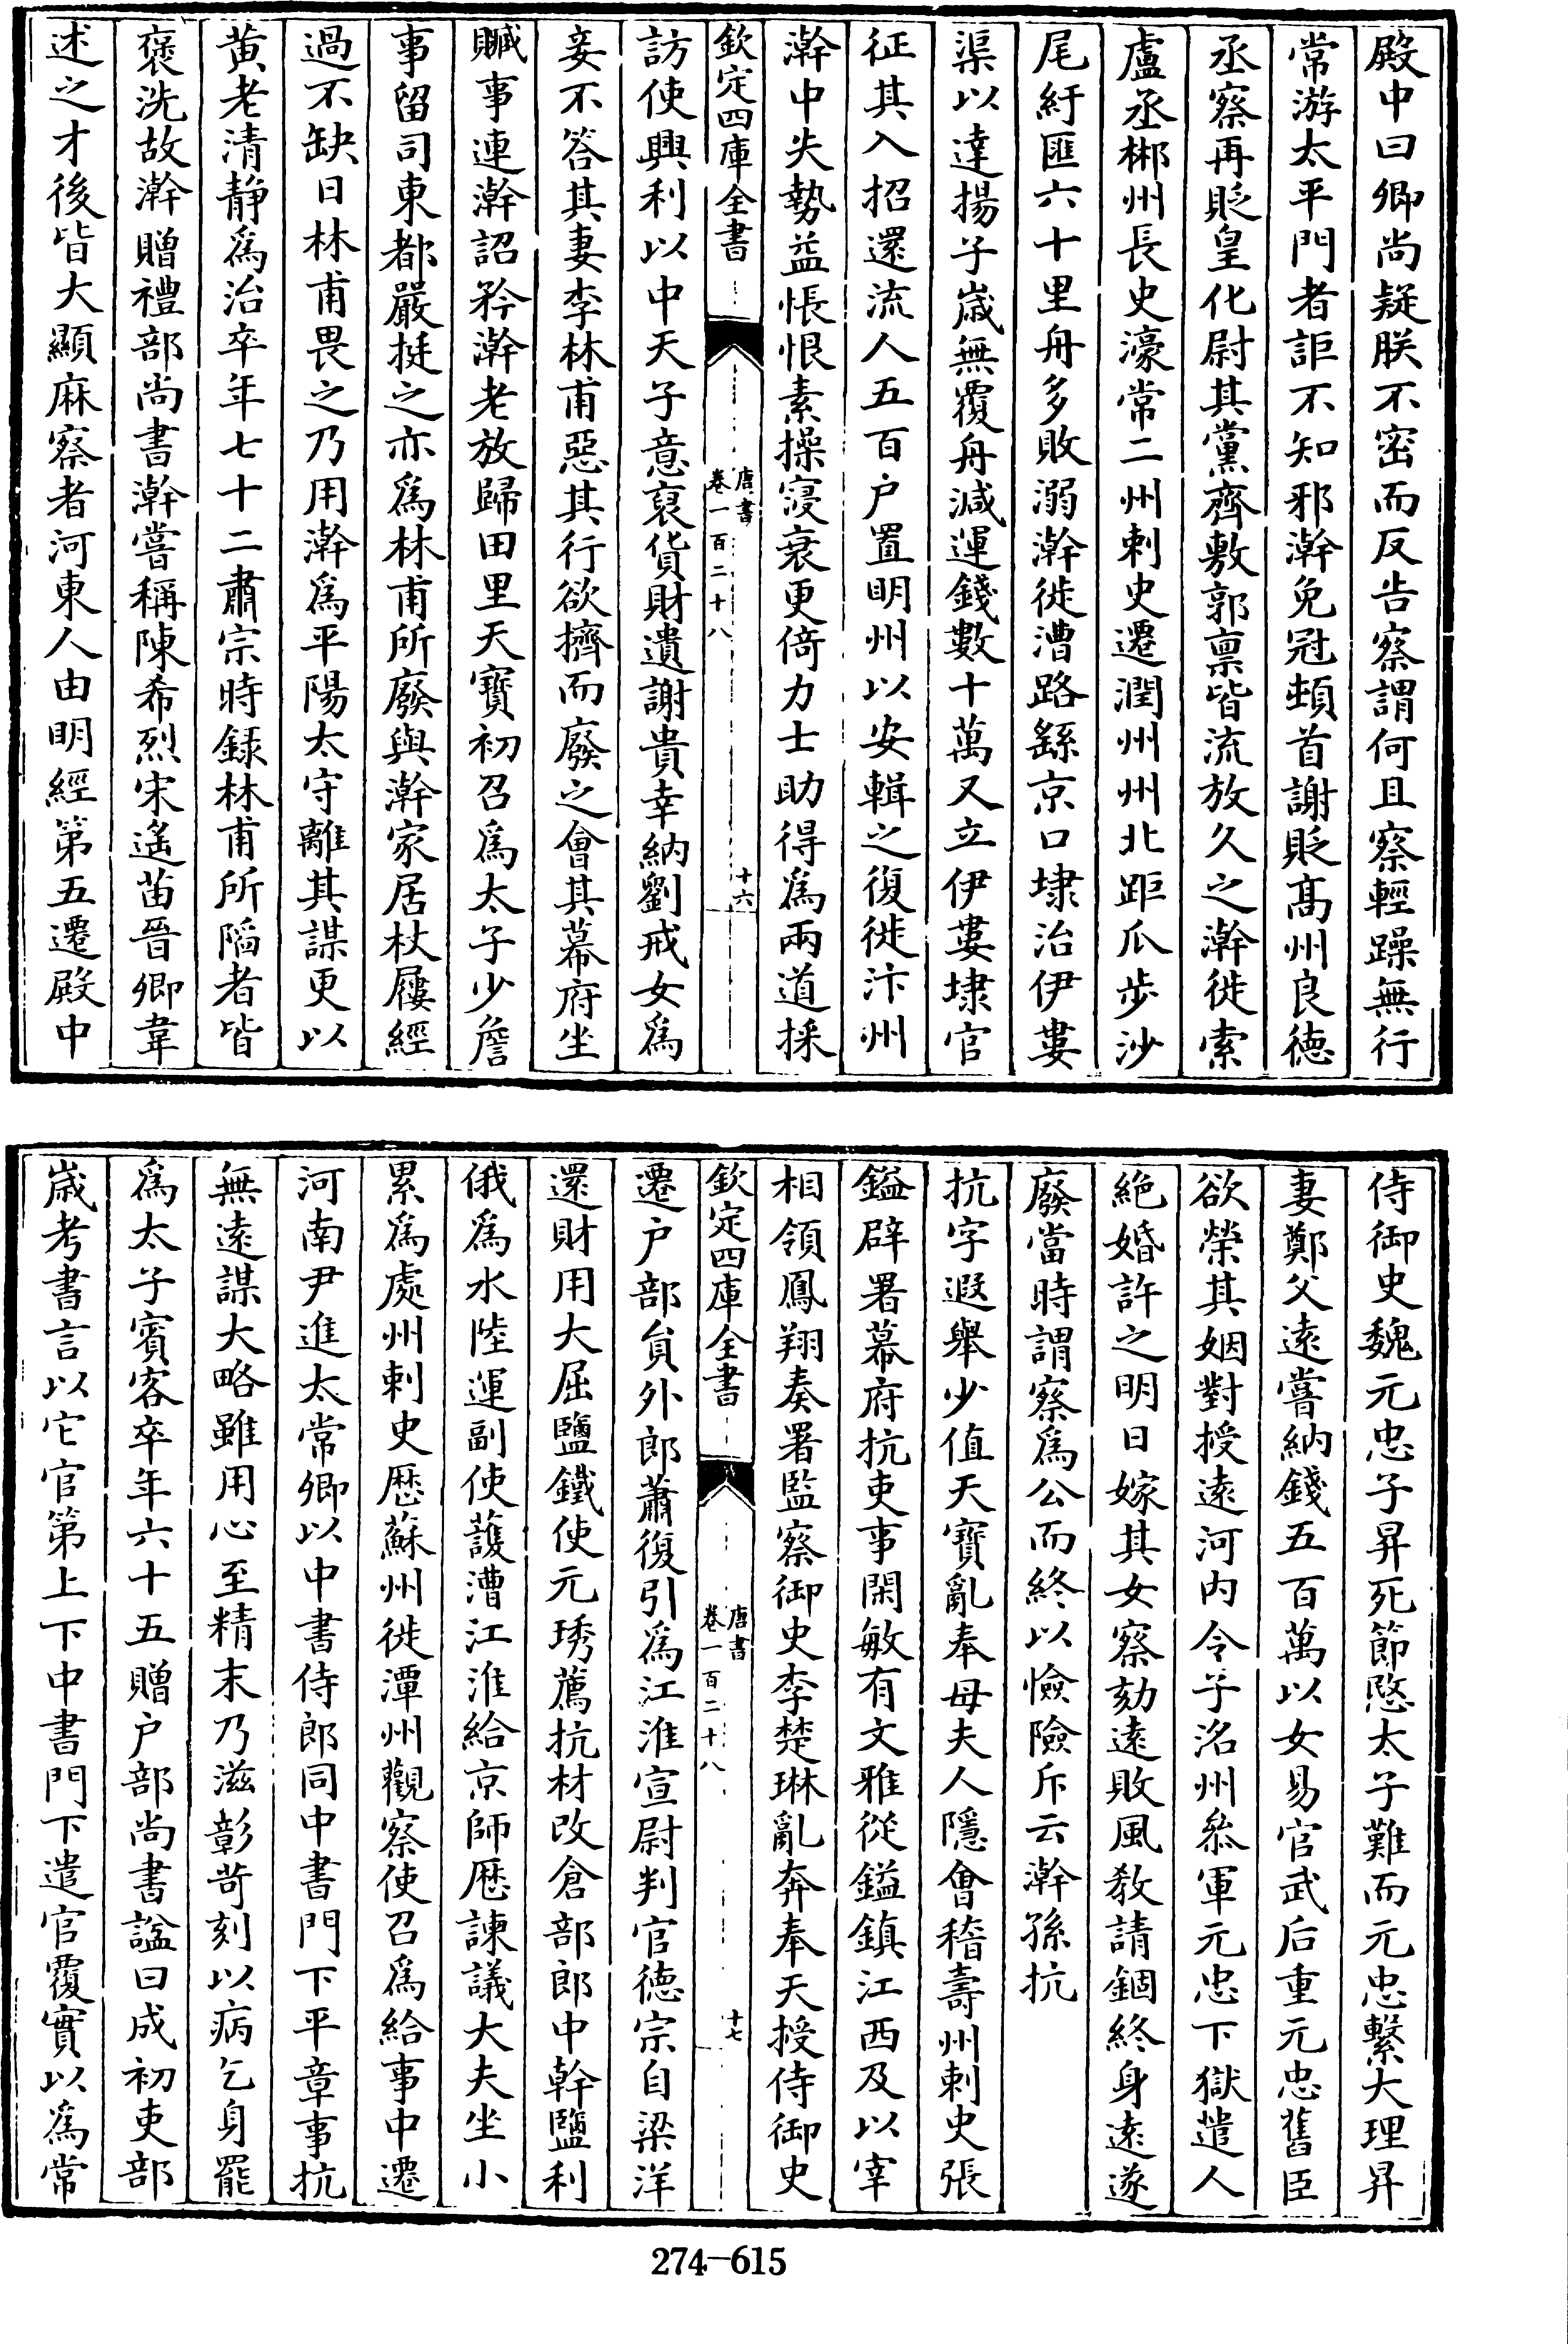 殿中曰卿尚疑朕不密而反告察謂何且察輕躁無行
常游太平門者詎不知邪澣免冠頓首謝貶髙州良徳
丞察再貶皇化尉其黨齊敷郭禀皆流放久之澣徙索
盧丞郴州長史濠常二州刺史遷潤州州北距瓜歩沙
尾紆匯六十里舟多敗溺澣徙漕路繇京口埭治伊婁
渠以達揚子嵗無覆舟減運錢數十萬又立伊婁埭官
征其入招還流人五百户置明州以安輯之復徙汴州
澣中失勢益悵恨素操寖衰更倚力士助得爲兩道採
欽定四庫全書
唐書
卷一百二十八
十六
訪使興利以中天子意裒貨財遺謝貴幸納劉戒女爲
妾不答其妻李林甫惡其行欲擠而廢之會其幕府坐
贓事連澣詔矜澣老放歸田里天寶初召爲太子少詹
事留司東都嚴挺之亦爲林甫所廢與澣家居杖屨經
過不缺日林甫畏之乃用澣爲平陽太守離其謀更以
黄老清静爲治卒年七十二肅宗時録林甫所陷者皆
褒洗故澣贈禮部尚書澣嘗稱陳希烈宋遙苗晉卿韋
述之才後皆大顯麻察者河東人由明經第五遷殿中
侍御史魏元忠子昇死節愍太子難而元忠繫大理昇
妻鄭父逺嘗納錢五百萬以女易官武后重元忠舊臣
欲榮其姻對授逺河内令子洺州叅軍元忠下獄遣人
絶婚許之明日嫁其女察劾逺敗風敎請錮終身逺遂
廢當時謂察爲公而終以憸險斥云澣孫抗
抗字遐舉少值天寶亂奉母夫人隱㑹稽壽州刺史張
鎰辟署幕府抗吏事閑敏有文雅從鎰鎮江西及以宰
相領鳳翔奏署監察御史李楚琳亂奔奉天授侍御史
欽定四庫全書
唐書
卷一百二十八
十七
遷户部貟外郎蕭復引爲江淮宣尉判官徳宗自梁洋
還財用大屈鹽鐵使元琇薦抗材改倉部郎中幹鹽利
俄爲水陸運副使䕶漕江淮給京師厯諫議大夫坐小
累爲處州刺史厯蘇州徙潭州觀察使召爲給事中遷
河南尹進太常卿以中書侍郎同中書門下平章事抗
無逺謀大略雖用心至精末乃滋彰苛刻以病乞身罷
爲太子賓客卒年六十五贈户部尚書諡曰成初吏部
嵗考書言以它官第上下中書門下遣官覆實以爲常
274-615